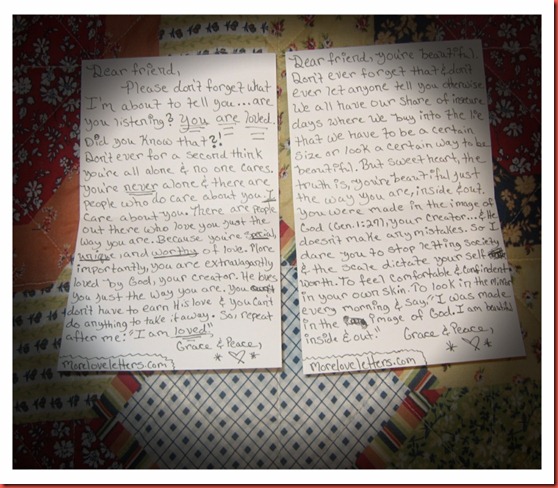 Dear friend,
Please don't forget what
I'm about to tell you...are
you listening? You are loved.
Did you know that?!
Don't ever for a second think
you're all alone & no one cares.
You're never alone & there are
people who do care about you. I
care about you. There are people
out there who love you just the
way you are. Because you're special,
unique, and worthy of love. More
importantly, you are extravagantly
loved by God, your creator. He loves
you just the way you are. You
don't have to earn His love & you can't
do anything to take it away. So, repeat
after me: "I am loved"
Grace & Peace,
moreloveletters.com
Dear friend, you're beautiful.
Don't ever forget that & don't
ever let anyone tell you otherwise
We all have our share of insecure
days where we buy into the lie
that we have to be a certain
size or look a certain way to be
beautiful. But sweetheart, the
truth is, you're beautiful just
the way you are, inside & out.
You were made in the image of
God (Gen. 1:27), your Creator...& He
doesn't make any mistakes. So I
dare you to stop letting society
& the scale dictate your self
worth. To feel comfortable & confident
in your own skin. To look in the mirror
every morning & say, "I was made
in the image of God. I am beautiful
inside & out.
Grace & Peace,
moreloveletters.com